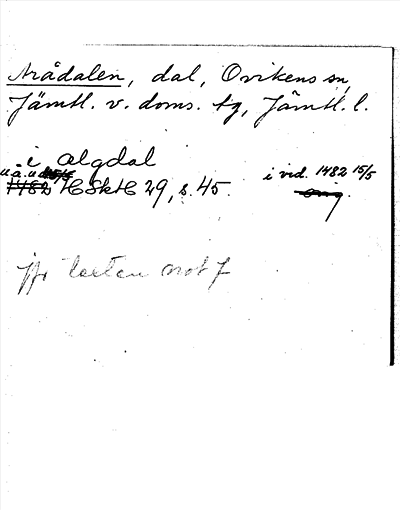 Arådalen, dal, Ovikens sn,
Jämtl. v. doms. tg, Jämtl. l.
i Algdal
u.å. u.d.
1482 HSkH 29, s. 45. i vid. 1482 15/5
orig.
jfr texten not 7